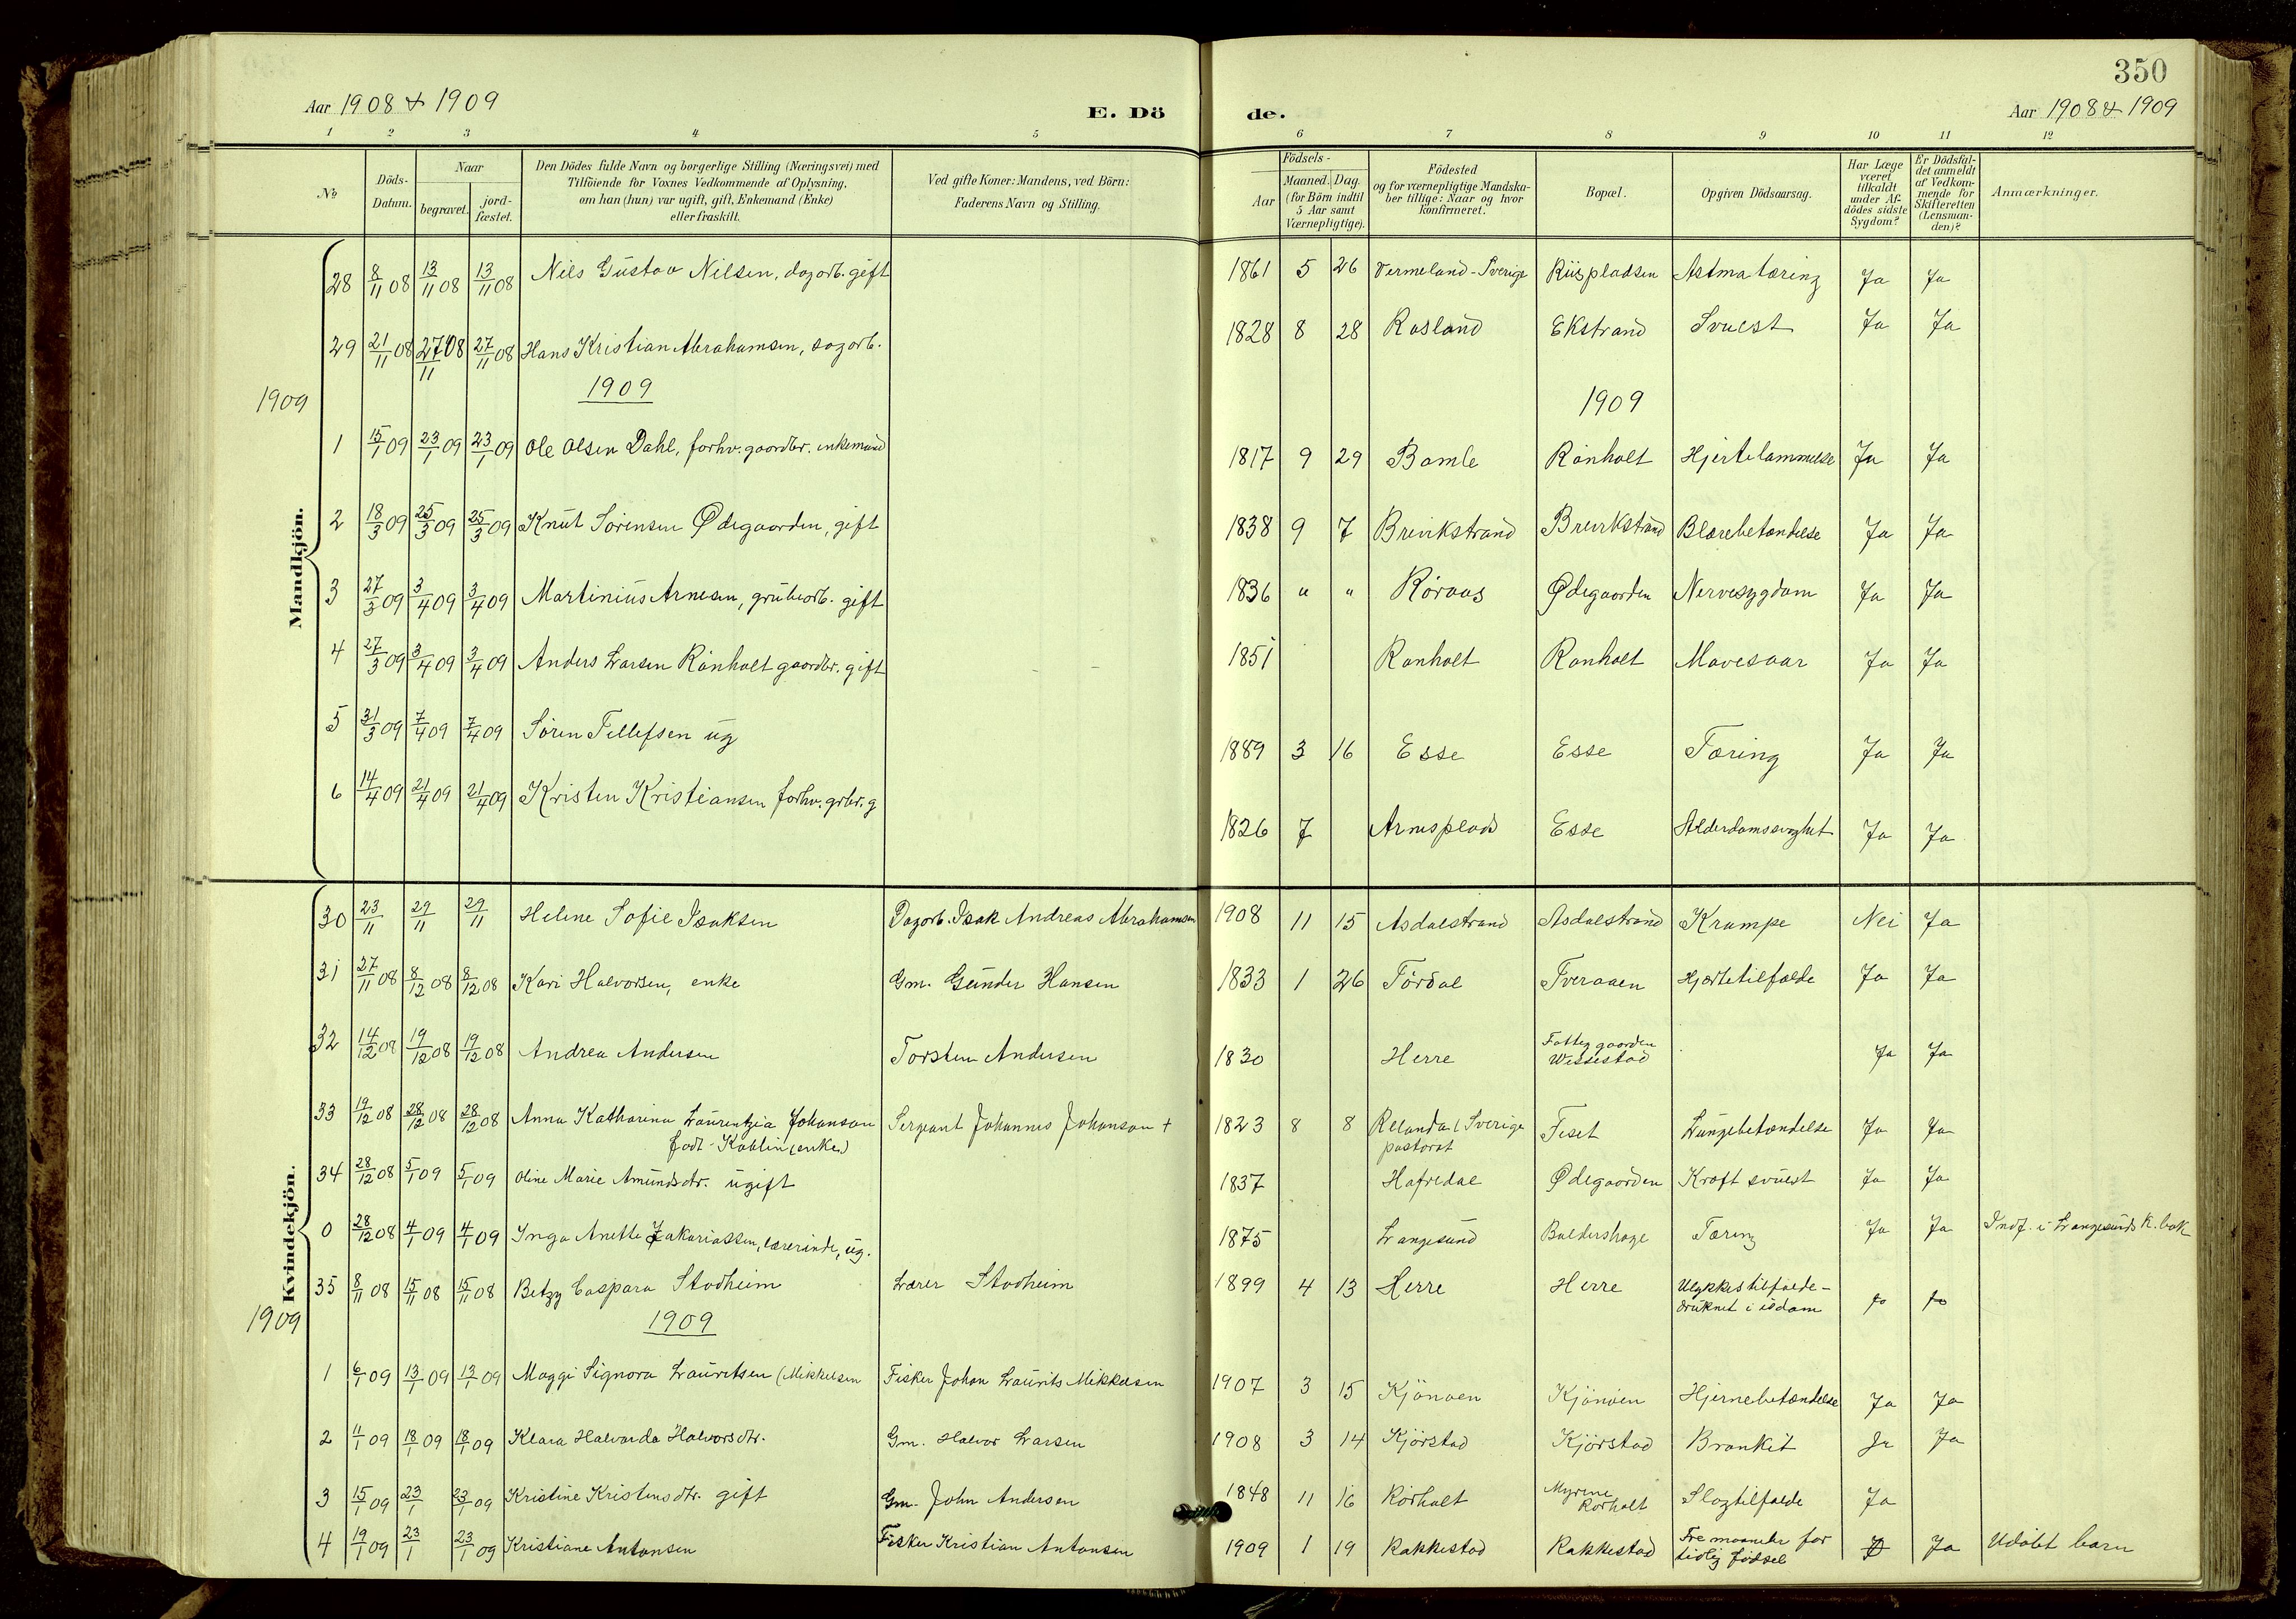 350
Aar 1908 & 1909
E. Dö
de.
Aar 1908 & 1909
1 2 3 4 5 6 7 8 9 10 11 12
No
Döds-Datum.
Naar
begravet.
jord-fæstet.
Den Dödes fulde Navn og borgerlige Stilling (Næringsvei) med
Tilföiende for Voxnes Vedkommende af Oplysning,
om han (hun) var ugift, gift, Enkemand (Enke)
eller fraskilt.
Ved gifte Koner: Mandens, ved Börn:
Faderens Navn og Stilling.
Födsels-
Aar
Maaned. Dag.
(for Börn indtil
5 Aar samt
Værnepligtige).
Födested
og for værnepligtige Mandska-
ber tillige: Naar og hvor
konfirmeret.
Bopæl.
Opgiven Dödsaarsag.
Har Læge
været
tilkaldt
under Af-
dödes sidste
Sygdom?
Er Dödsfal-
det anmeldt
af Vedkom-
mende for
Skifteretten
(Lensman-
den)?
Anmærkninger.
Mandkjön.
28 8/11 08 13/11 08 13/11 08 Nils Gustav Nilsen, dagarb. gift 1861 5 26 Vermeland - Sverige Riispladsen Astma tæring Ja Ja
29 21/11 08 27/11 08 27/11 08 Hans Kristian Abrahamsen, dagarb. 1828 8 28 Rosland Ekstrand Svulst Ja Ja
1909 1909 1909
1 15/1 09 23/1 09 23/1 09 Ole Olsen Dahl, forhv. gaardbr. enkemand 1817 9 29 Bamle Rönholt Hjertelammelse Ja Ja
2 18/3 09 25/3 09 25/3 09 Knut Sörensen Ødegaarden, gift 1838 9 7 Brevikstrand Brevikstrand Blærebetændelse Ja Ja
3 27/3 09 3/4 09 3/4 09 Martinius Arnesen, grubearb. gift 1836 " " Röraas Ødegaarden Nervesygdom Ja Ja
4 27/3 09 3/4 09 3/4 09 Anders Larsen Rönholt gaardbr. gift 1851 Rönholt Rönholt Mavesaar Ja Ja
5 31/3 09 7/4 09 7/4 09 Sören Tellefsen ug 1889 3 16 Esse Esse Tæring Ja Ja
6 14/4 09 21/4 09 21/4 09 Kristen Kristiansen forhv. grbr. g 1826 7 Arnesplads Esse Alderdomssvaghet Ja Ja
Kvindekjön.
30 23/11 29/11 29/11 Helene Sofie Isaksen Dagarb. Isak Andreas Abrahamsen 1908 11 15 Asdalstrand Asdalstrand Krampe Nei Ja
31 27/11 08 8/12 08 8/12 08 Kari Halvorsen, enke Gm. Gunder Hansen 1833 1 26 Tördal Tveraaen Hjertetilfælde Ja Ja
32 14/12 08 19/12 08 19/12 08 Andrea Andersen Torsten Andersen 1830 Herre Fattiggaarden
Wessestad Ja Ja
33 19/12 08 28/12 08 28/12 08 Anna Katharina Laurentzia Johanson Sergeant Johannes Johanson + 1823 8 8 Relanda (Sverige Feset Lungebetændelse Ja Ja
født Kahlin (enke) pastorat
34 28/12 08 5/1 09 5/1 09 Oline Marie Amundsdtr. ugift 1837 Hafredal Ødegaarden Kræft svulst Ja Ja
0 28/12 08 4/1 09 4/1 09 Inga Anette Zakariassen, lærerinde, ug. 1875 Langesund Baldershage Tæring Ja Ja Indf. i Langesunds K. bok
35 8/11 08 15/11 08 15/11 08 Betzy Caspara Stodheim Lærer Stodheim 1899 4 13 Herre Herre Ulykkestilfælde -
druknet i isdam Ja Ja
1909 1909
1 6/1 09 13/1 09 13/1 09 Maggi Signora Lauritsen (Mikkelsen Fisker Johan Laurits Mikkelsen 1907 3 15 Kjönöen Kjönöen Hjernebetændelse Ja Ja
2 11/1 09 18/1 09 18/1 09 Klara Halvarda Halvorsdtr. Gm. Halvor Larsen 1908 3 14 Kjörstad Kjörstad Bronkit Ja Ja
3 15/1 09 23/1 23/1 09 Kristine Kristensdtr. gift Gm. John Andersen 1848 11 16 Rörholt Myrene
Rorholt Slagtilfælde Ja
4 19/1 09 23/1 23/1 09 Kristiane Antonsen Fisker Kristian Antonsen 1909 1 19 Rakkestad Rakkestad Tre maaneder for
tidlig födsel Ja Udöbt barn